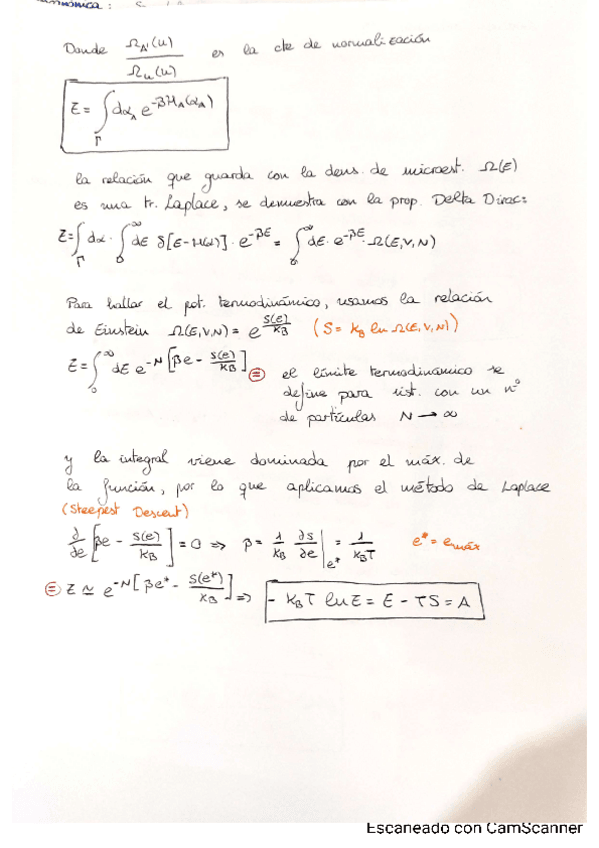 Donde Ω_A(u) / Ω_u(u) es la cte de normalización
Z = ∫_Γ dα_A e^{-βH_A(α_A)}
la relación que guarda con la dens. de microest. Ω(E)
es una tr. Laplace, se demuestra con la prop. Delta Dirac:
Z = ∫_Γ dα · ∫_0^∞ dE δ[E-H(α)] · e^{-βE} = ∫_0^∞ dE · e^{-βE} · Ω(E,V,N)
Para hallar el pot. termodinámico, usamos la relación
de Einstein Ω(E,V,N) = e^{S(e)/k_B} (S = k_B ln Ω(E,V,N))
Z = ∫_0^∞ dE e^{-N[βe - S(e)/k_B]} ≡ el límite termodinámico se
define para sist. con un nº
de partículas N → ∞
y la integral viene dominada por el máx. de
la función, por lo que aplicamos el método de Laplace
(Steepest Descent)
∂/∂e [βe - S(e)/k_B] = 0 ⇒ β = 1/k_B ∂S/∂e |_{e*} = 1/k_BT e* = e_máx
≡ Z ≃ e^{-N[βe* - S(e*)/k_B]} ⇒ - k_BT ln Z = E - TS = A
Escaneado con CamScanner